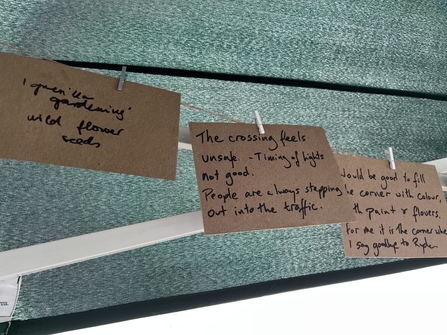 'guerilla
gardening'
wild flower
seeds
The crossing feels
unsafe. - Timing of lights
not good.
People are always stepping
out into the traffic.
Would be good to fill
the corner with colour,
paint & flowers.
For me it is the corner where
I say goodbye to Ryde